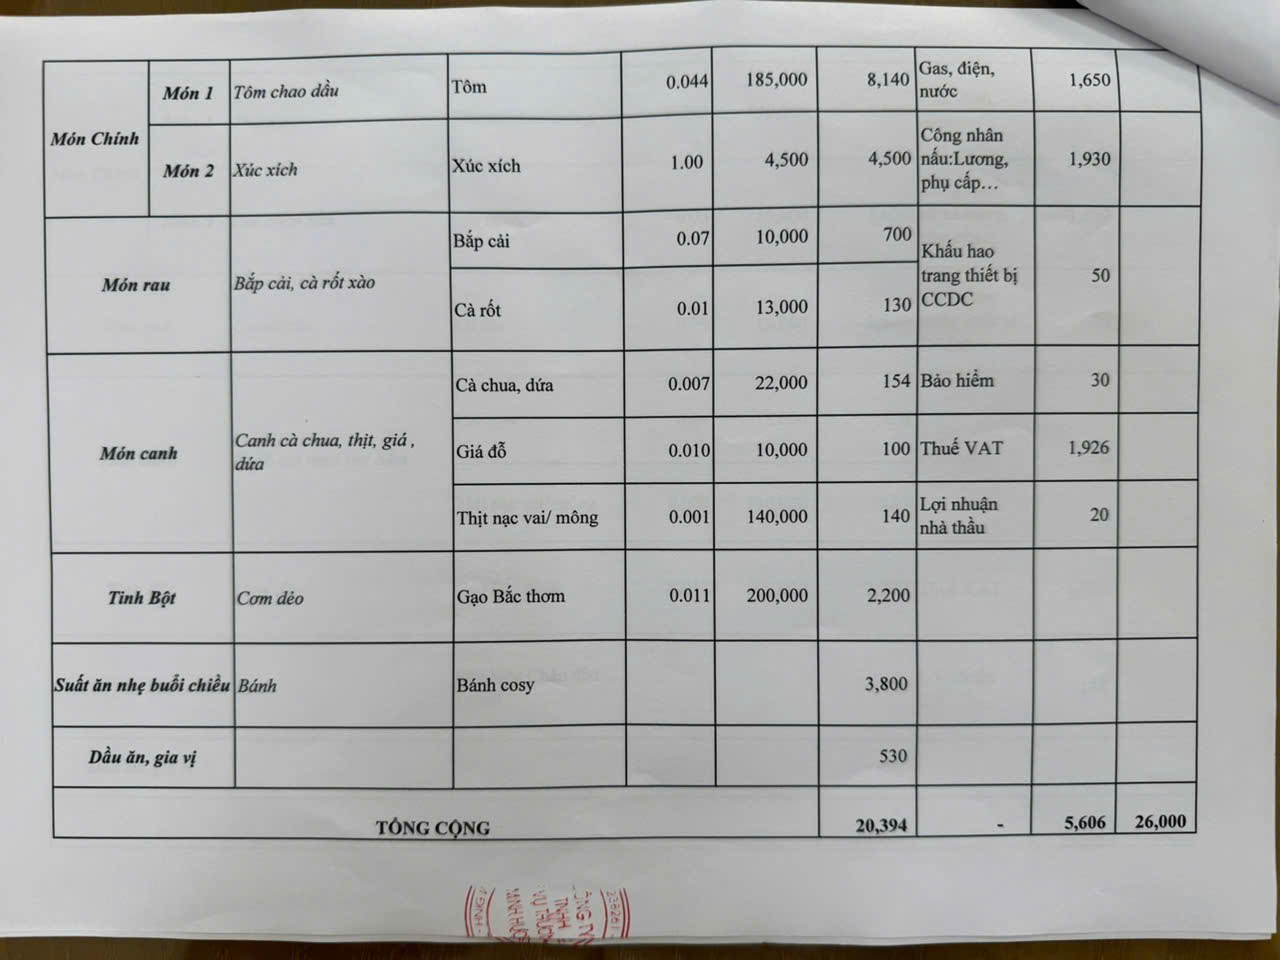 Món Chính
Món 1
Tôm chao dầu
Tôm
0.044
185,000
8,140
Gas, điện,
nước
1,650
Món 2
Xúc xích
Xúc xích
1.00
4,500
4,500
Công nhân
nấu:Lương,
phụ cấp...
1,930
Món rau
Bắp cải, cà rốt xào
Bắp cải
0.07
10,000
700
Khấu hao
trang thiết bị
CCDC
50
Cà rốt
0.01
13,000
130
Món canh
Canh cà chua, thịt, giá ,
dứa
Cà chua, dứa
0.007
22,000
154
Bảo hiểm
30
Giá đỗ
0.010
10,000
100
Thuế VAT
1,926
Thịt nạc vai/ mông
0.001
140,000
140
Lợi nhuận
nhà thầu
20
Tinh Bột
Cơm dẻo
Gạo Bắc thơm
0.011
200,000
2,200
Suất ăn nhẹ buổi chiều
Bánh
Bánh cosy
3,800
Dầu ăn, gia vị
530
TỔNG CỘNG
20,394
-
5,606
26,000
TNHH